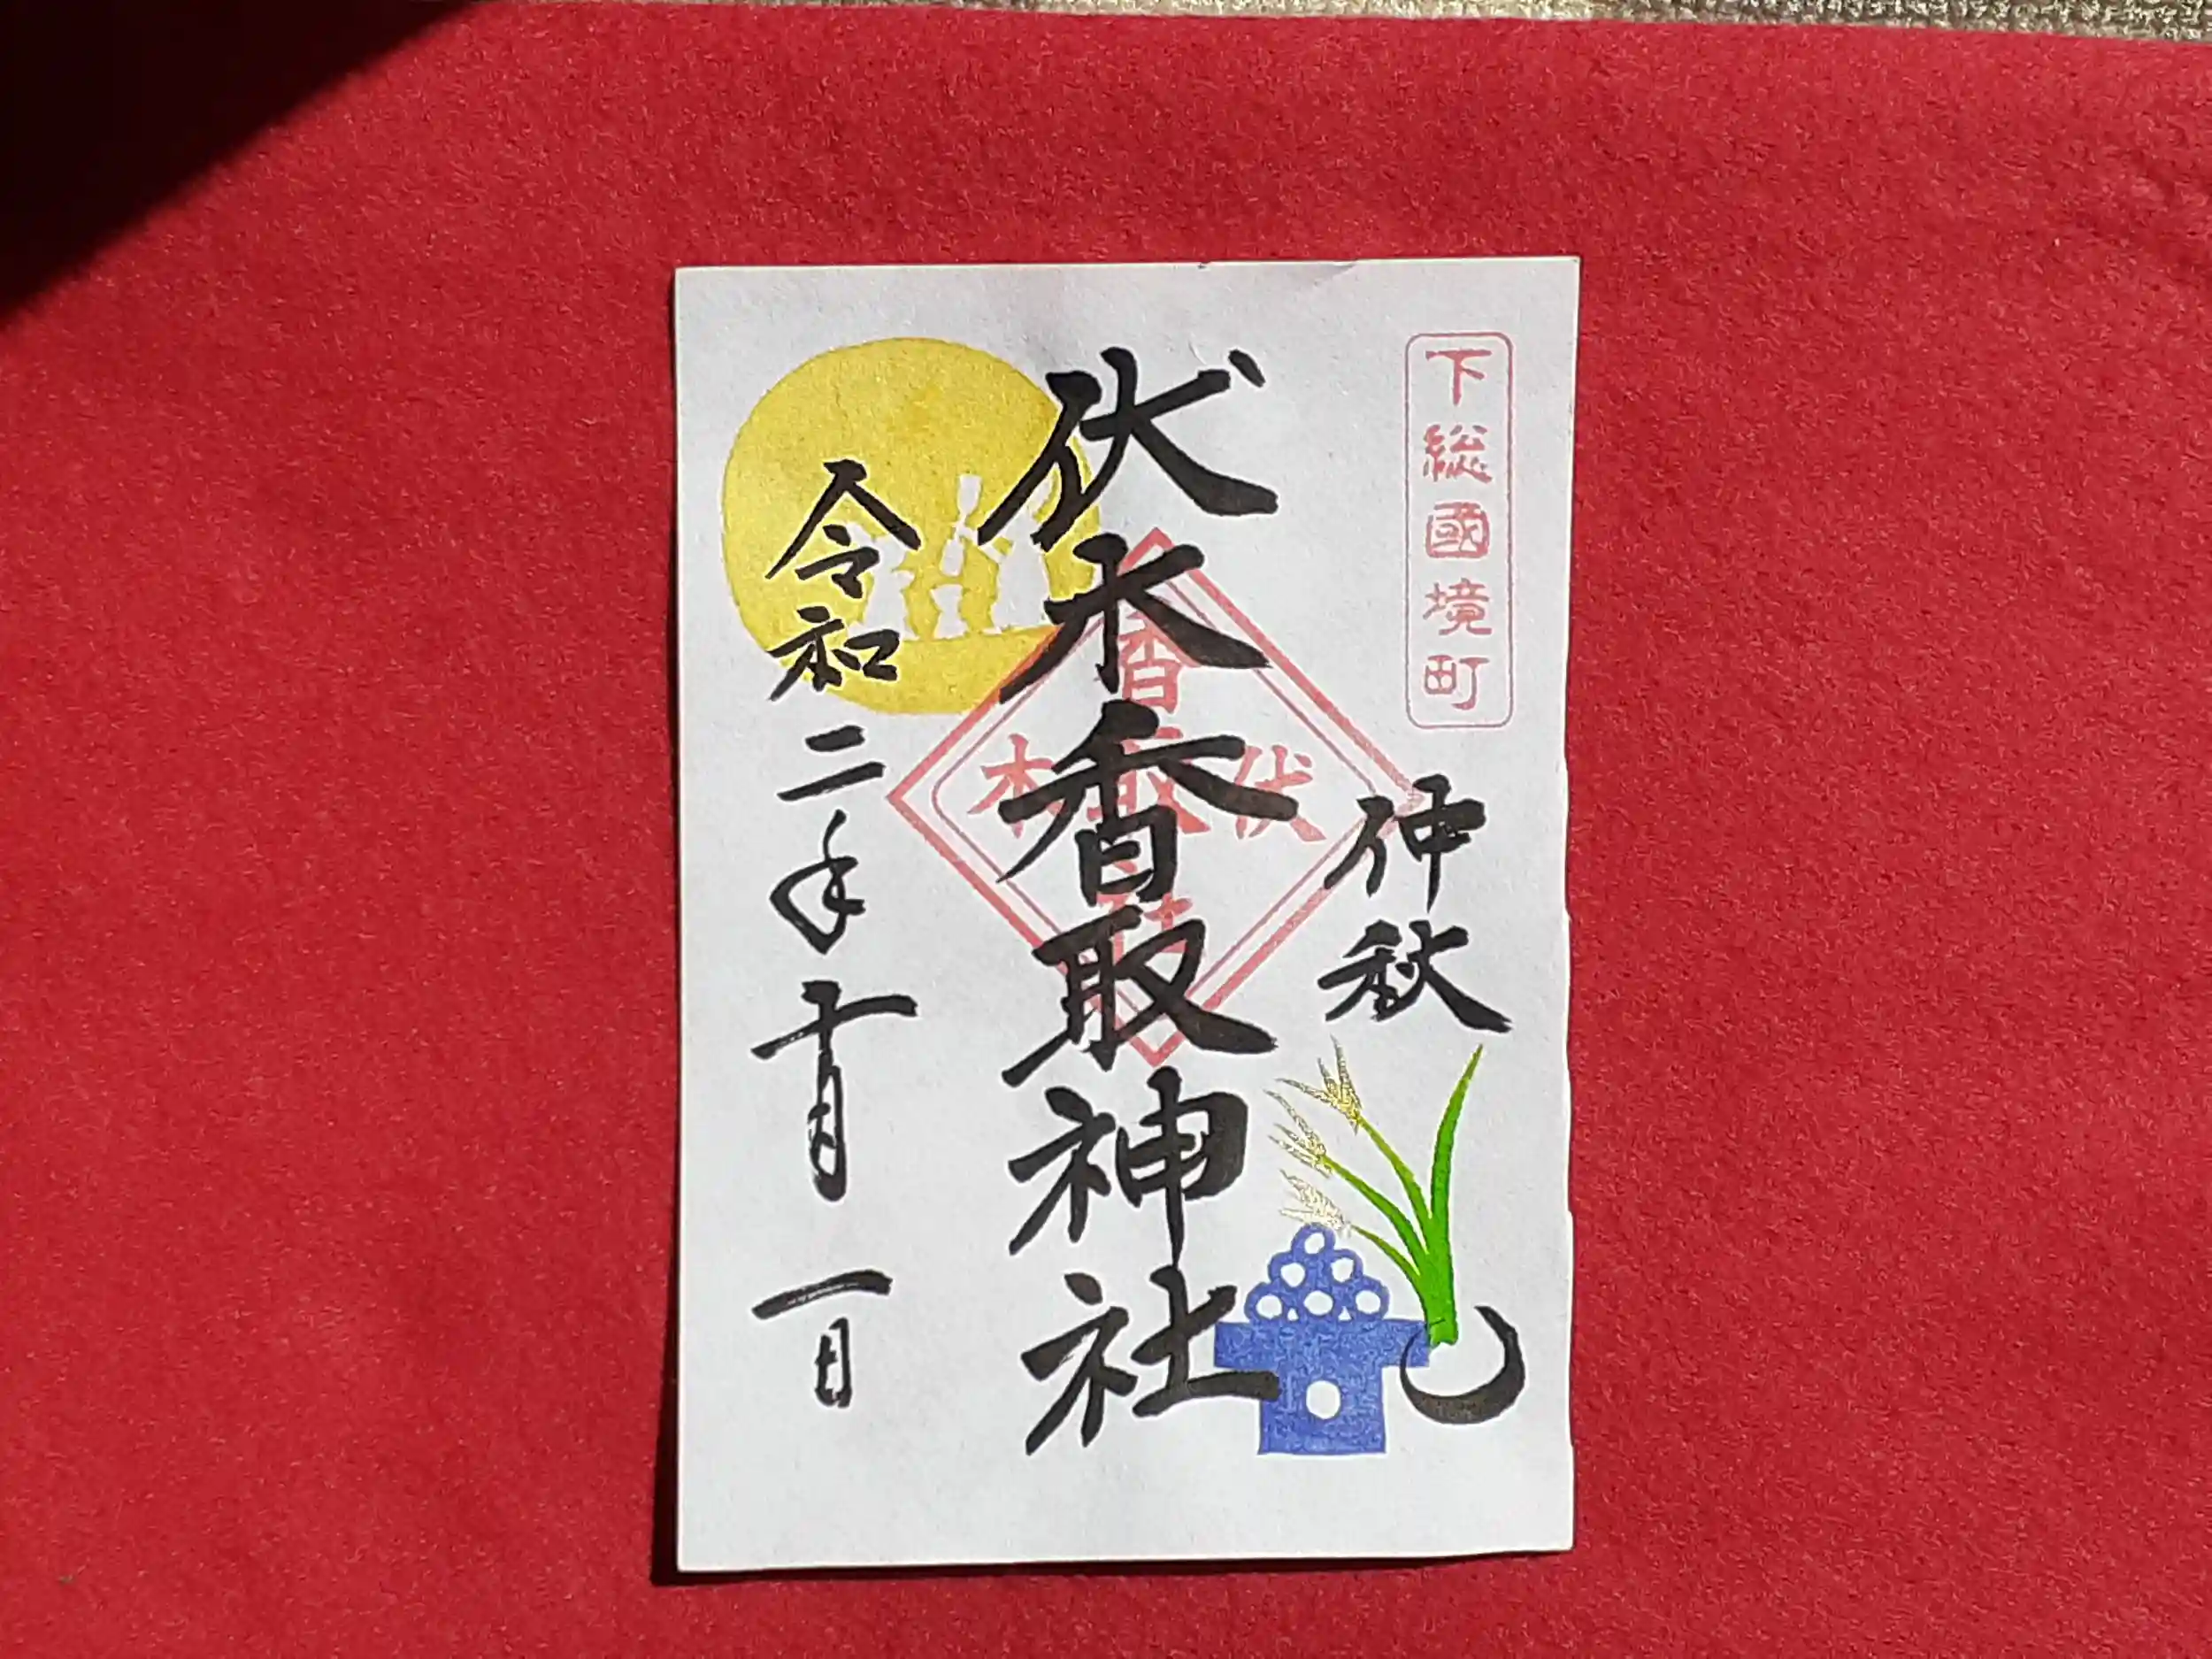 下総國境町
仲秋
伏木香取神社
香取社
伏木
令和二年十月一日